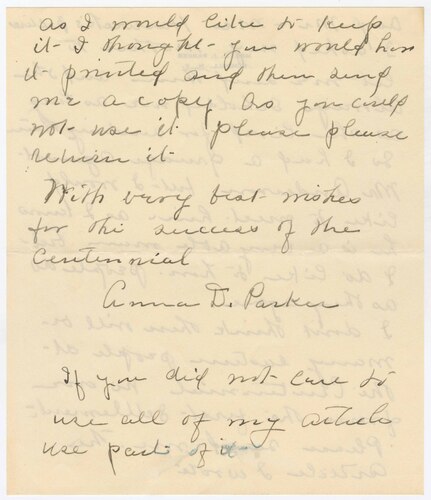 as I would like to keep
it. I thought you would have
it printed and then send
me a copy. As you could
not use it please please
return it
With very best wishes
for the success of the
Centennial
Anna D. Parker
If you did not care to
use all of my article
use part of it